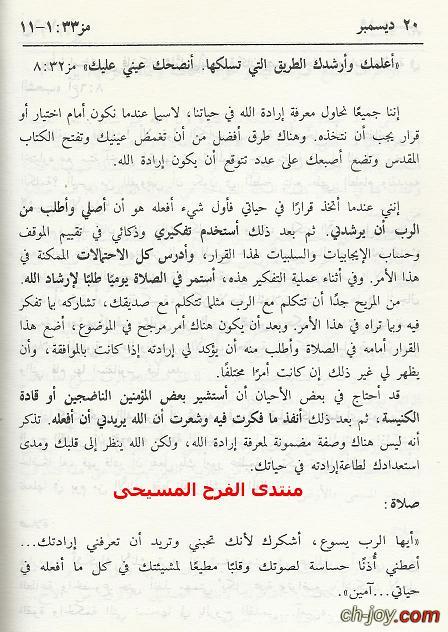 ٢٠ ديسمبر
مز٣٣:١-١١
«أعلمك وأرشدك الطريق التي تسلكها. أنصحك عيني عليك» مز٣٢:٨
إننا جميعًا نحاول معرفة إرادة الله في حياتنا، لاسيما عندما نكون أمام اختيار أو
قرار يجب أن نتخذه. وهناك طرق أفضل من أن تغمض عينيك وتفتح الكتاب
المقدس وتضع أصبعك على عدد تتوقع أن يكون إرادة الله.
إنني عندما أتخذ قرارًا في حياتي فأول شيء أفعله هو أن أصلي وأطلب من
الرب أن يرشدني. ثم بعد ذلك أستخدم تفكيري وذكائي في تقييم الموقف
وحساب الإيجابيات والسلبيات لهذا القرار، وأدرس كل الاحتمالات الممكنة في
هذا الأمر. وفي أثناء عملية التفكير هذه، أستمر في الصلاة يوميًا طلبًا لإرشاد الله.
من المريح جدًا أن تتكلم مع الرب مثلما تتكلم مع صديقك، تشاركه بما تفكر
فيه وبما تراه في هذا الأمر. وبعد أن يكون هناك أمر مرجح في الموضوع، أضع هذا
القرار أمامه في الصلاة وأطلب منه أن يؤكد لي إرادته إذا كانت بالموافقة، وأن
يظهر لي غير ذلك إن كانت أمرًا مختلفًا.
قد أحتاج في بعض الأحيان أن أستشير بعض المؤمنين الناضجين أو قادة
الكنيسة، ثم بعد ذلك أنفذ ما فكرت فيه وشعرت أن الله يريدني أن أفعله. تذكر
أنه ليس هناك وصفة مضمونة لمعرفة إرادة الله، ولكن الله ينظر إلى قلبك ومدى
استعدادك لطاعةإرادته في حياتك.
منتدى الفرح المسيحى
صلاة:
«أيها الرب يسوع، أشكرك لأنك تحبني وتريد أن تعرفني إرادتك...
أعطني أُذنًا حساسة لصوتك وقلبًا مطيعًا لمشيئتك في كل ما أفعله في
حياتي...آمين».
ch-joy.com